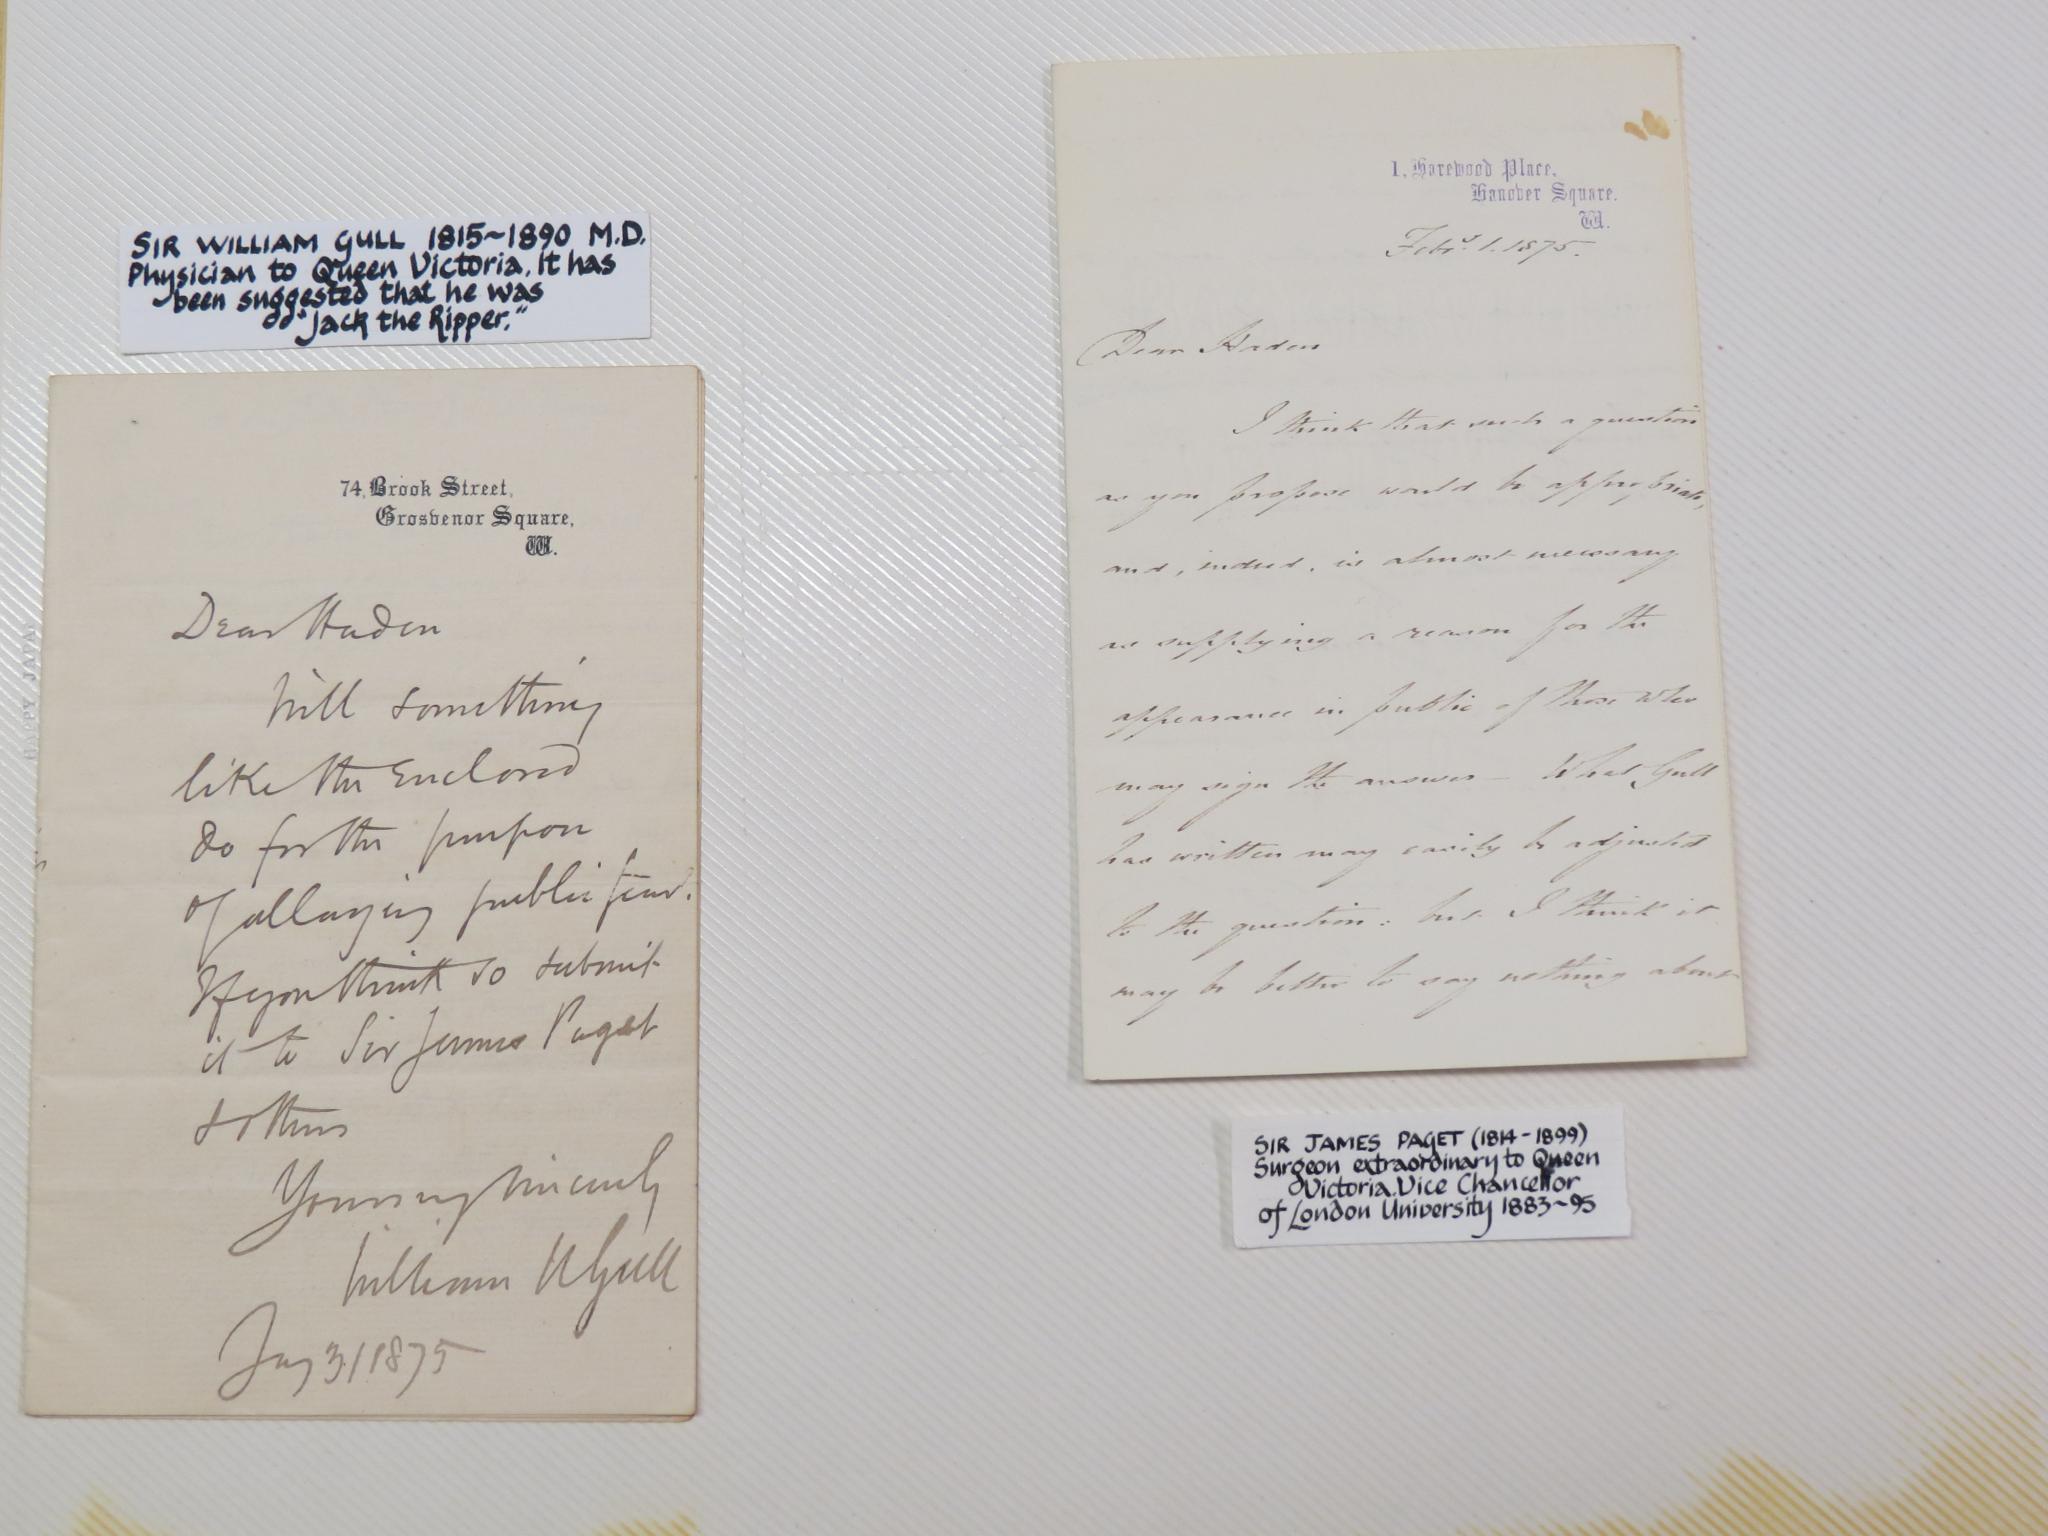 SIR WILLIAM GULL 1815~1890 M.D.
Physician to Queen Victoria. It has
been suggested that he was
"Jack the Ripper."
74, Brook Street,
Grosvenor Square,
W.
Dear Haden
Will something
like the enclosed
do for the purpose
of allaying public fear.
If you think so submit
it to Sir James Paget
& others
Yours very sincerely
William W Gull
Jany 31 1875
HAPPY JAPA
1, Harewood Place,
Hanover Square.
W.
Feby. 1. 1875.
Dear Haden
I think that such a question
as you propose would be appropriate,
and, indeed, is almost necessary
as supplying a reason for the
appearance in public of those who
may sign the answer — What Gull
has written may easily be adjusted
to the question: but I think it
may be better to say nothing about
SIR JAMES PAGET (1814-1899)
Surgeon extraordinary to Queen
Victoria. Vice Chancellor
of London University 1883~95